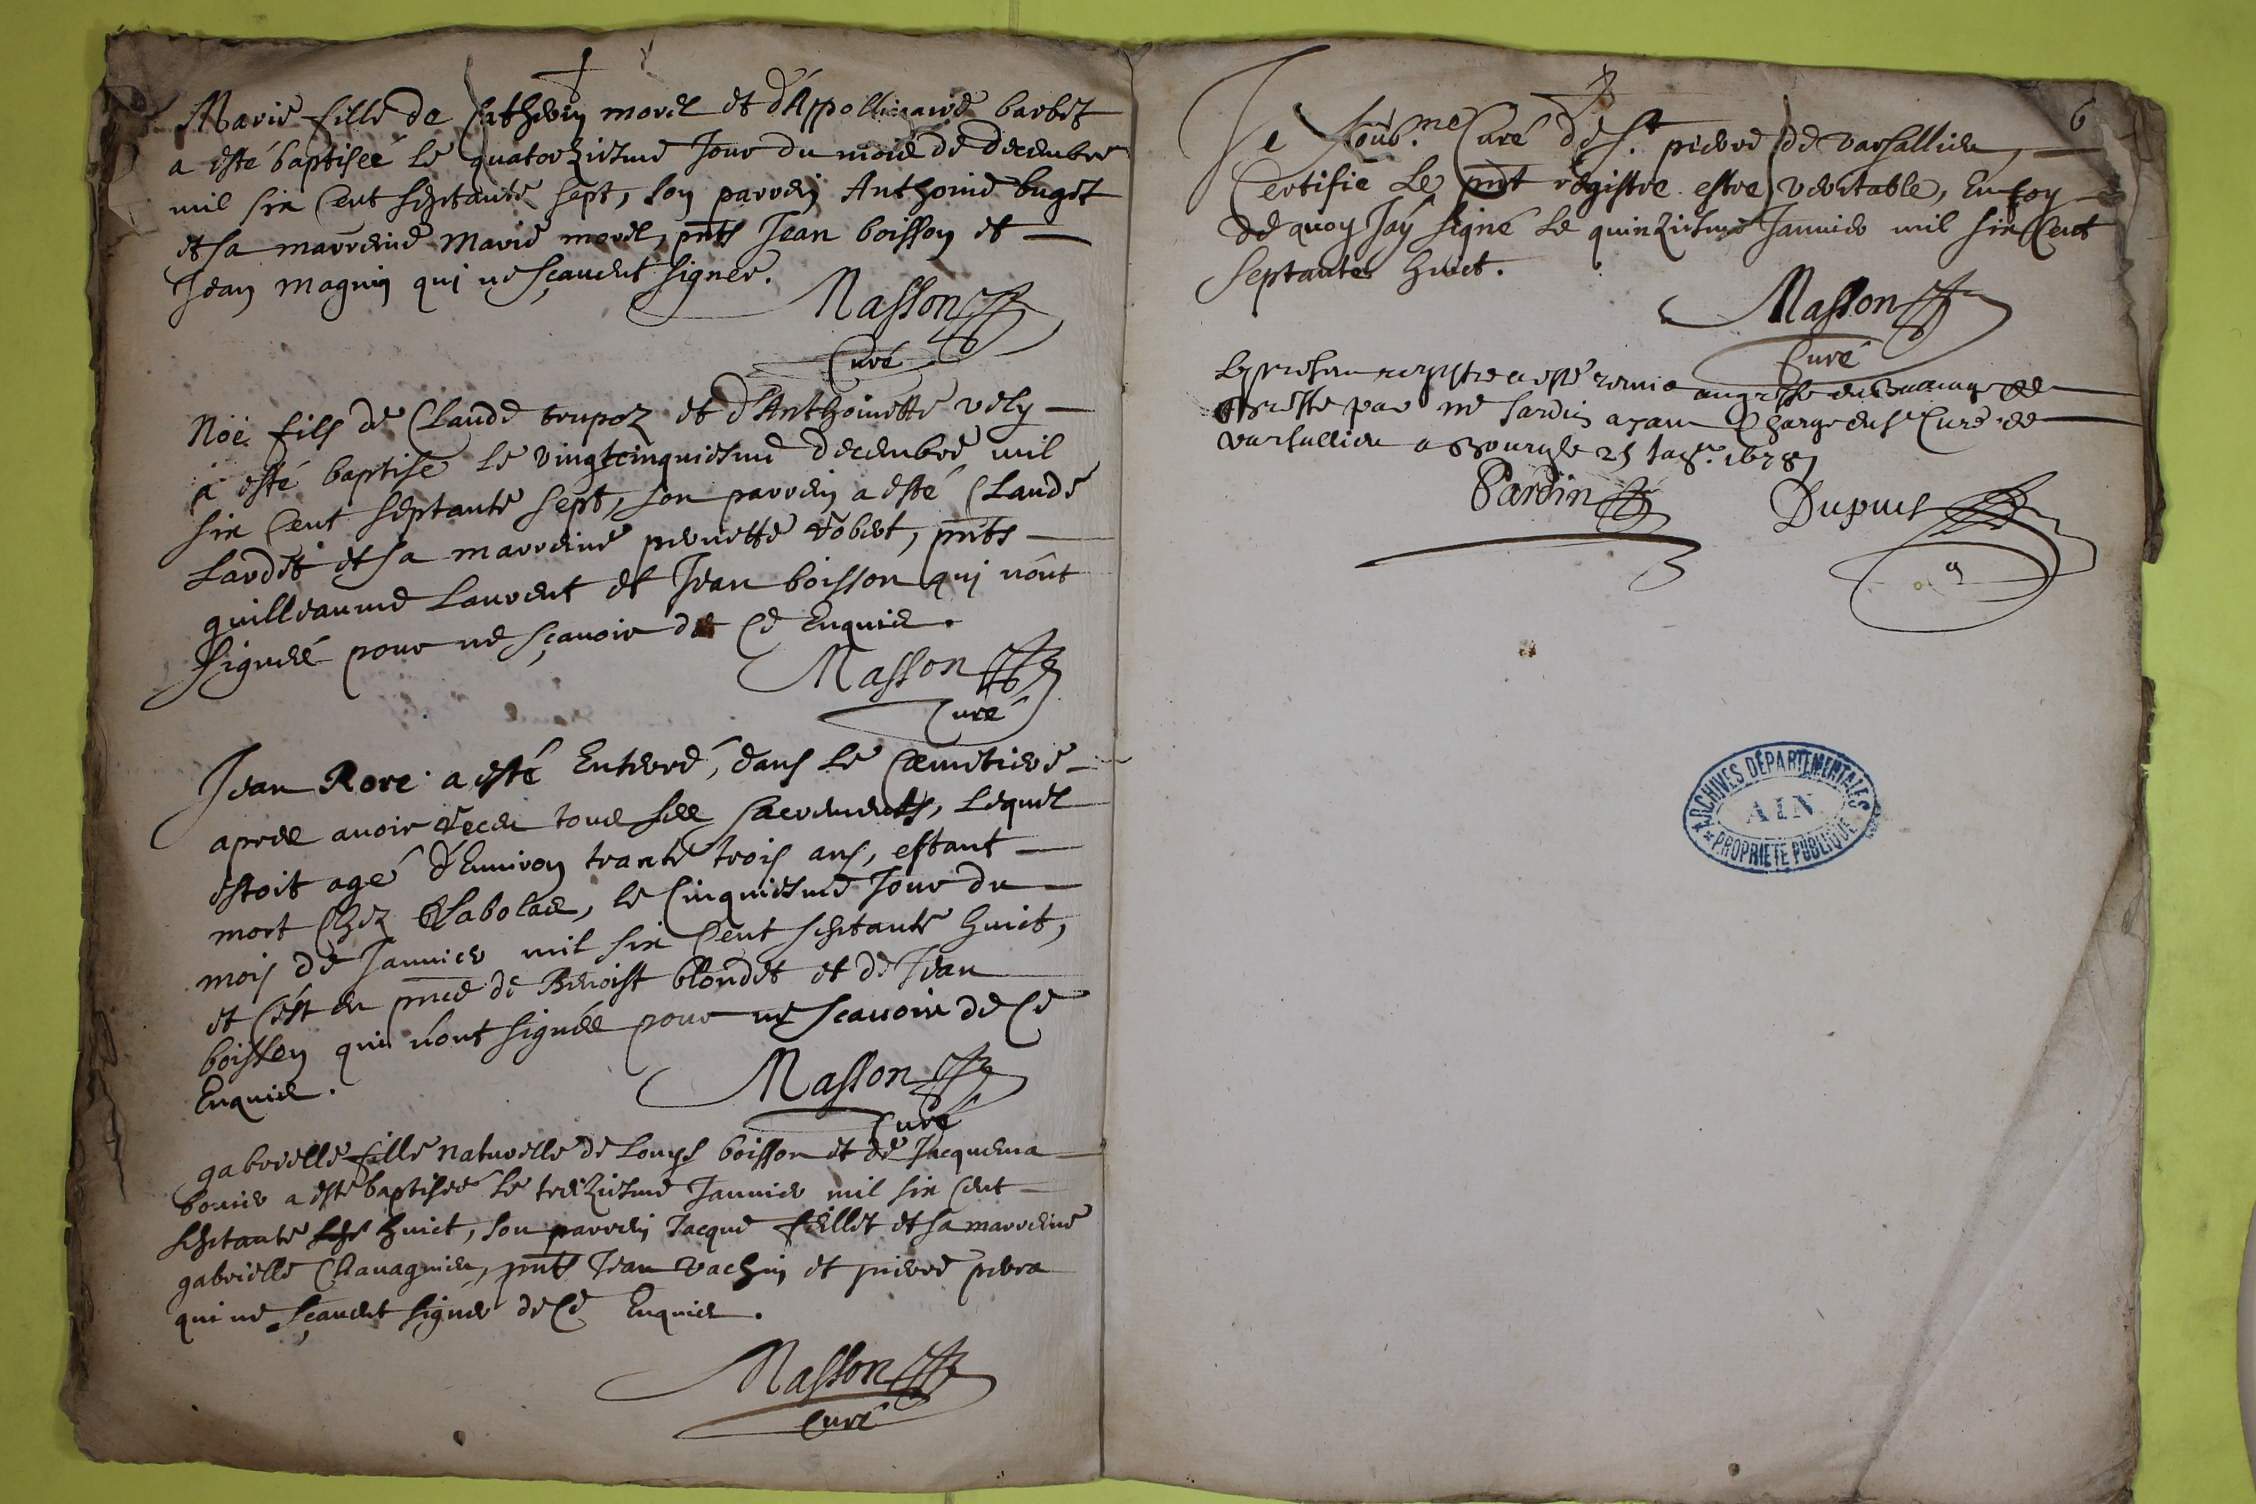 Marie fille de Catherin morel et d'Appollinaire barbet
a esté baptiseé le quatorziesme Jour du mois de decembre
mil six Cent septante sept, son parrein Anthoine buget
et sa marreine Marie morel, pnts Jean boisson et
Jean magnin qui ne sçauent signer.
Masson
Curé
Noë fils de Claude trupoz et d'Anthoinette vely
a esté baptise le vingtcinquiesme decembre mil
six Cent septante sept, son parrein a esté Claude
Lardet et sa marreine pernette robert, pnts
guilleaume Laurent et Jean boisson qui n'ont
signéé pour ne sçauoir de Ce Enquis.
Masson
Curé
Jean Rore a esté Enterré, dans le Cemitiere
apres auoir receu tous ses sacrements, Lequel
estoit agé d'Enuiron trante trois ans, estant
mort Chez , le Cinquiesme Jour du
mois de Januier mil six Cent septante huict,
et c'est en pnce de Benoist blondet et de Jean
boisson qui n'ont signés pour ne scauoir de Ce
Enquis.
Masson
Curé
gabrielle fille naturelle de Louys boisson et de Jacquema
bouier a esté baptiseé le treiziesme Januier mil six cent
septante huict, son parrein Jacque fillet et sa marreine
gabrielle Chauagnieu, pnts Jean vachin et pierre
qui ne sçauent signer de Ce Enquis.
Masson
Curé
6
Je Soub.me Curé de St. pierre de varsallieu
Certifie Le pnt registre estre veritable, En foy
de quoy J'aÿ signé le quinziesme Januier mil six Cent
septante huict.
Masson
Curé
Le present registre a esté remis au greffe du Bailliage de
par me Jardin ayant Charge du sr Curé de
varsallieu a Bourg le 25 1678
Jardin Dupuis
ARCHIVES DÉPARTEMENTALES
AIN
PROPRIÉTÉ PUBLIQUE